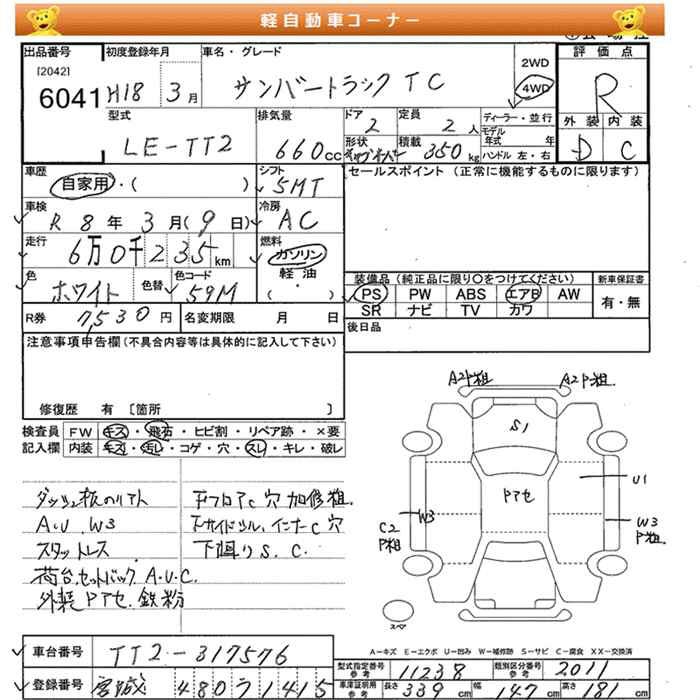 軽自動車コーナー
出品番号 初度登録年月 車名・グレード 評価点
[2042]
6041 H18 3月 サンバートラック TC 2WD 4WD R
型式 排気量 ドア 定員 ディーラー・並行 外装 内装
LE-TT2 660cc 2 2人 モデル年式 年 D C
形状 積載 350kg ハンドル 左・右
車歴 シフト セールスポイント (正常に機能するものに限ります)
自家用・( ) 5MT
車検 冷房
R 8年 3月(9日) AC
走行 燃料
6万0千235km ガソリン
軽油
( )
色 色替 色コード
ホワイト 59M
装備品 (純正品に限り○をつけてください) 新車保証書
PS PW ABS エアB AW 有・無
SR ナビ TV カワ
R券 7,530円 名変期限 月 日 後日品
注意事項申告欄(不具合内容等は具体的に記入して下さい)
修復歴 有 〔箇所 〕
検査員 FW キズ・飛石・ヒビ割・リペア跡・×要
記入欄 内装 キズ・汚レ・コゲ・穴・スレ・キレ・破レ
A2P粗 A2P粗.
S1
Pアセ
U1
W3
C2
P粗
W3
P粗.
スペア
A.U W3
スタットレス
荷台.セットバック A.U.C.
外装 Pアセ 鉄粉
下フロアC穴 加修粗.
下サイドシル.インナーC穴
下廻り S.C.
A−キズ E−エクボ U−凹み W−補修跡 S−サビ C−腐食 XX−交換済
車台番号 TT2-317576
型式指定番号 参考 11238 類別区分番号 参考 2011
登録番号 宮城 480 ワ 1415
車庫証明用 参考 長さ 339cm 幅 147cm 高さ 181cm